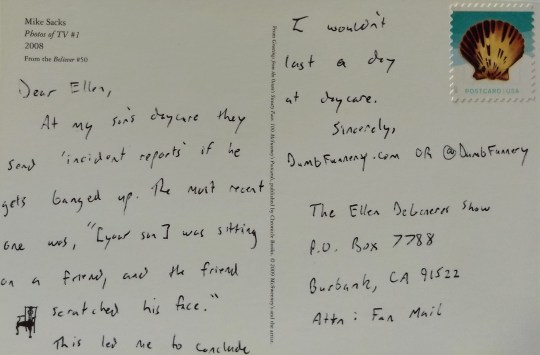 Mike Sacks
Photos of TV #1
2008
From the Believer #50
Dear Ellen,
At my son's daycare they
send 'incident reports' if he
gets banged up. The most recent
one was, "[your son] was sitting
on a friend, and the friend
scratched his face."
This led me to conclude
From Greetings from the Ocean's Sweaty Face: 100 McSweeney's Postcards, published by Chronicle Books. © 2009 McSweeney's and the artist.
I wouldn't
last a day
at daycare.
Sincerely,
DumbFunnery.com OR @DumbFunnery
POSTCARD USA
The Ellen DeGeneres Show
P.O. Box 7788
Burbank, CA 91522
Attn: Fan Mail